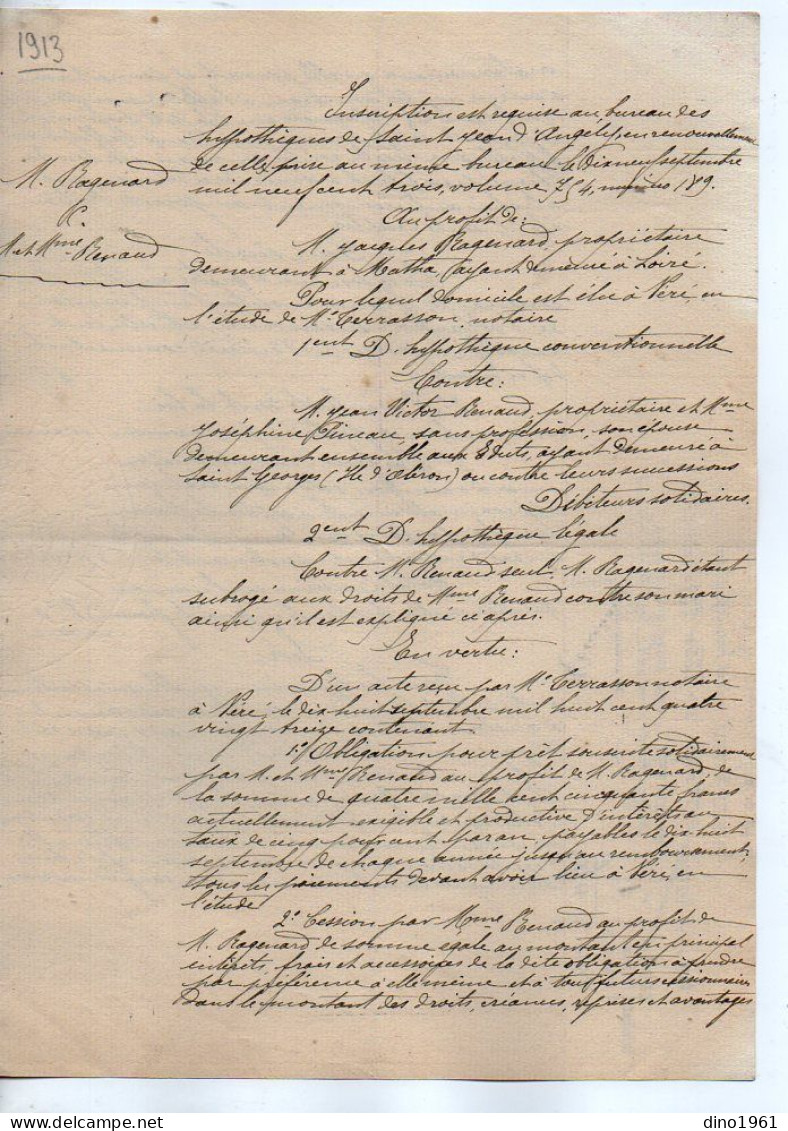 1913
Inscription est requise au bureau des
hypothèques de Saint Jean d'Angely, en renouvellement
de celle prise au même bureau le dix neuf septembre
mil neuf cent trois, volume 754, numéro 189.
M. Ragenard
C.
M. et Mme Renaud
Au profit de:
M. Jacques Ragenard, propriétaire
demeurant à Matha, (ayant demeuré à Loiré.
Pour lequel domicile est élu à Néré, en
l'étude de Me Terrasson, notaire
1ent D. hypothèque conventionnelle
Contre:
M. Jean Victor Renaud, propriétaire et Mme
Joséphine Pineau, sans profession, son épouse
demeurant ensemble aux Eduts, ayant demeuré à
Saint Georges (Ile d'Oléron) ou contre leurs successions
Débiteurs solidaires.
2ent D. hypothèque légale
Contre M. Renaud seul, M. Ragenard étant
subrogé aux droits de Mme Renaud contre son mari
ainsi qu'il est expliqué ci après.
En vertu:
D'un acte reçu par Me Terrasson notaire
à Néré, le dix huit septembre mil huit cent quatre
vingt treize contenant
1º/ Obligation pour prêt souscrite solidairement
par M. et Mme Renaud au profit de M. Ragenard, de
la somme de quatre mille cent cinquante francs
actuellement exigible et productive d'intérêts au
taux de cinq pour cent par an, payables le dix huit
septembre de chaque année jusqu'au remboursement;
tous les paiements devant avoir lieu à Néré, en
l'étude
2º Cession par Mme Renaud au profit de
M. Ragenard de somme égale au montant en principal
intérêts, frais et accessoires de la dite obligation à prendre
par préférence à elle même et à tout futurs cessionnaires
dans le montant des droits, créances, reprises et avantages
dino1961